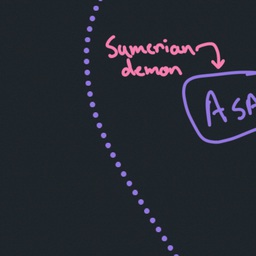 Sumerian
demon
ASA